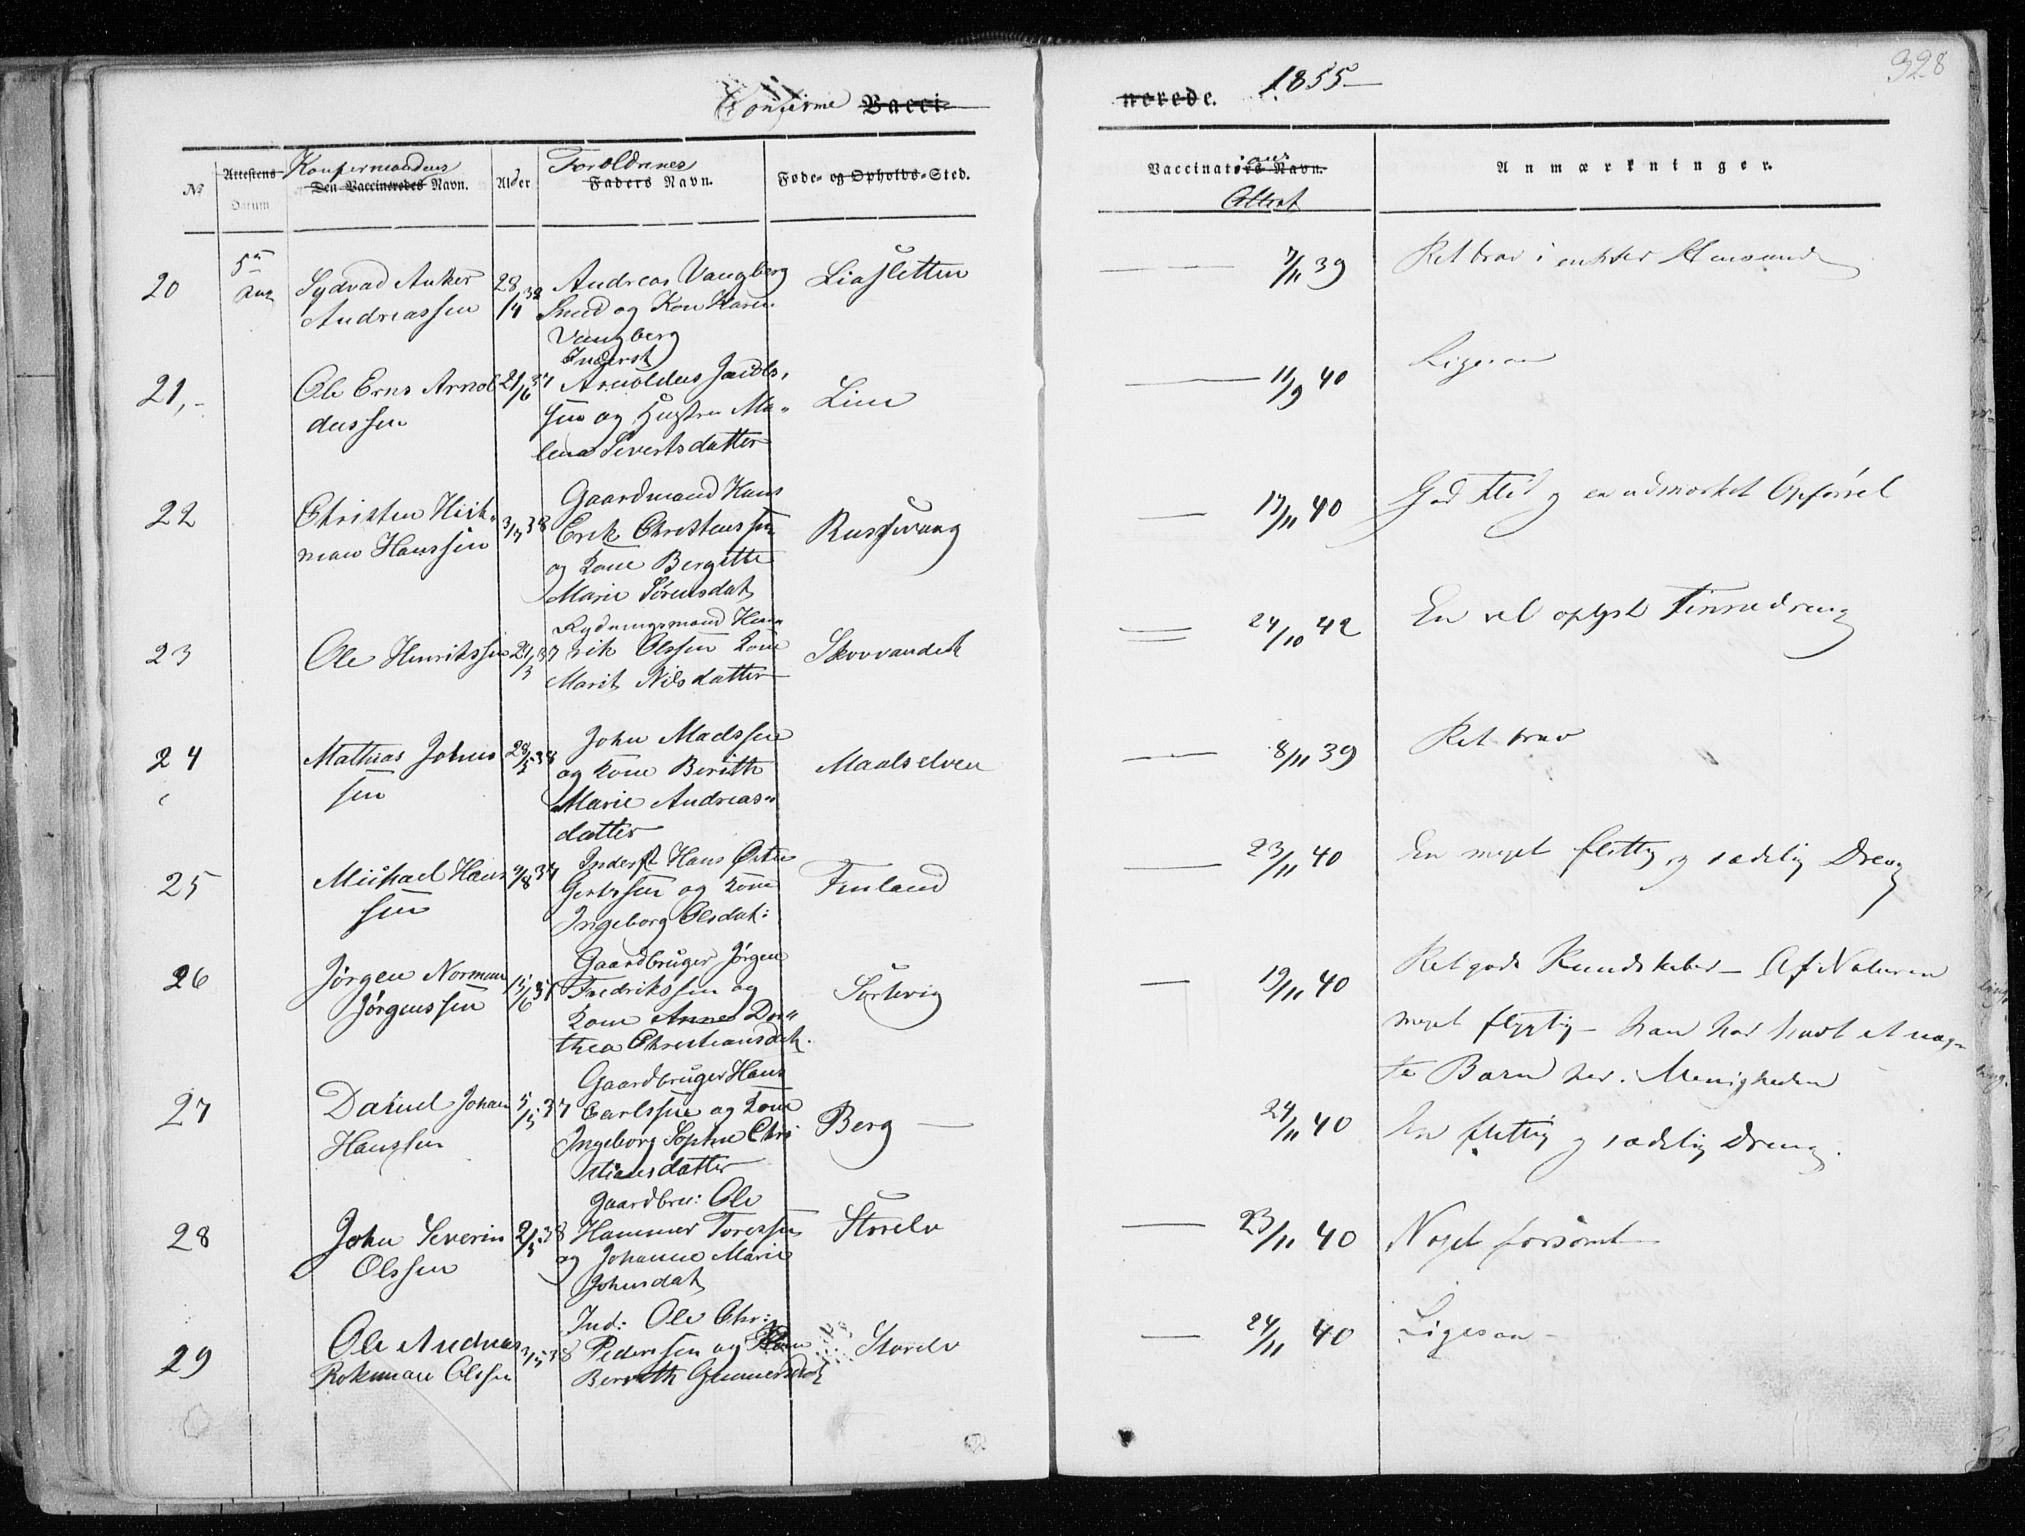 328
Confirme Vacci-
nerede. 1855
No
Attestens Datum
Konfirmandens
Den Vaccineredes Navn.
Alder
Forældrenes
Faders Navn.
Føde- og Opholds-Sted.
Vaccinations Navn.
Attest
Anmærkninger.
20
5te Aug
Sydvad Anker
Andreassen
28/4 38
Andreas Vangberg
Smed og Kon Karen
Vangberg
Liasletten
7/11 39
Ret brav i enkker Henseende
21,-
Ole Erns Arnol
dussen
21/6 37
Inderst
Arnoldus Jacobs,
sen og Hustru Ma„
lena Sivertsdatter
Lien
11/9 40
Ligesaa
22
Christen Hick„
man Hanssen
3/3 38
Gaardmand Hans
Erik Christenssen
og Kone Bergitte
Marie Sørensdat
Russevang
17/11 40
God Flid og en udmærket Opførsel
23
Ole Henrikssen
21/3 37
Rydningsmand Hen
rik Olssen Kone
Marit Nilsdatter
Skovvandet
24/10 42
En vel oplyst Finnedreng
24
Mathias Johns
sen
28/5 38
John Madssen
og Kone Berith
Marie Andreas„
datter
Maalselven
8/11 39
Ret brav
25
Michael Hans
sen
9/8 37
Inderst Hans Østen
Gertssen og Kone
Ingeborg Olsdat:
Finland
23/11 40
En meget flittig og sædelig Dreng
26
Jørgen Norman
Jørgenssen
15/6 37
Gaardbruger Jørgen
Fredrikssen og
Kone Anne Dor„
thea Christiansdat.
Sørlevig
19/11 40
Ret gode Kundskaber - Af Naturen
meget flygtig - han har havt et uæg„
te Barn her i Menigheden
27
Daniel Johan
Hanssen
5/5 37
Gaardbruger Hans
Carlssen og Kone
Ingeborg Sophie Chri
stiansdatter
Berg
24/11 40
En flittig og sædelig Dreng.
28
John Severin
Olssen
2/3 38
Gaardbru: Ole
Hammer Toressen
og Johanne Marie
Johnsdat
Storelv
23/11 40
Noget forsømt
29
Ole Andreas
Rokman Olssen
3/5 38
Ind: Ole Chr:
Pederssen og Kone
Bereth Gunnersdat
Storelv
24/11 40
Ligesaa